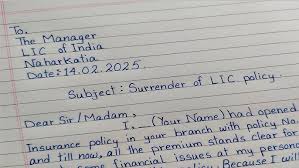 To,
The Manager
LIC of India
Naharkatia
Date: 14.02.2025.
Subject: Surrender of LIC policy.
Dear Sir/Madam,
I, (Your Name) had opened
Insurance policy in your branch with policy No.
and till now, all the premium stands clear for
some financial issues at my person
policy. Because I wi